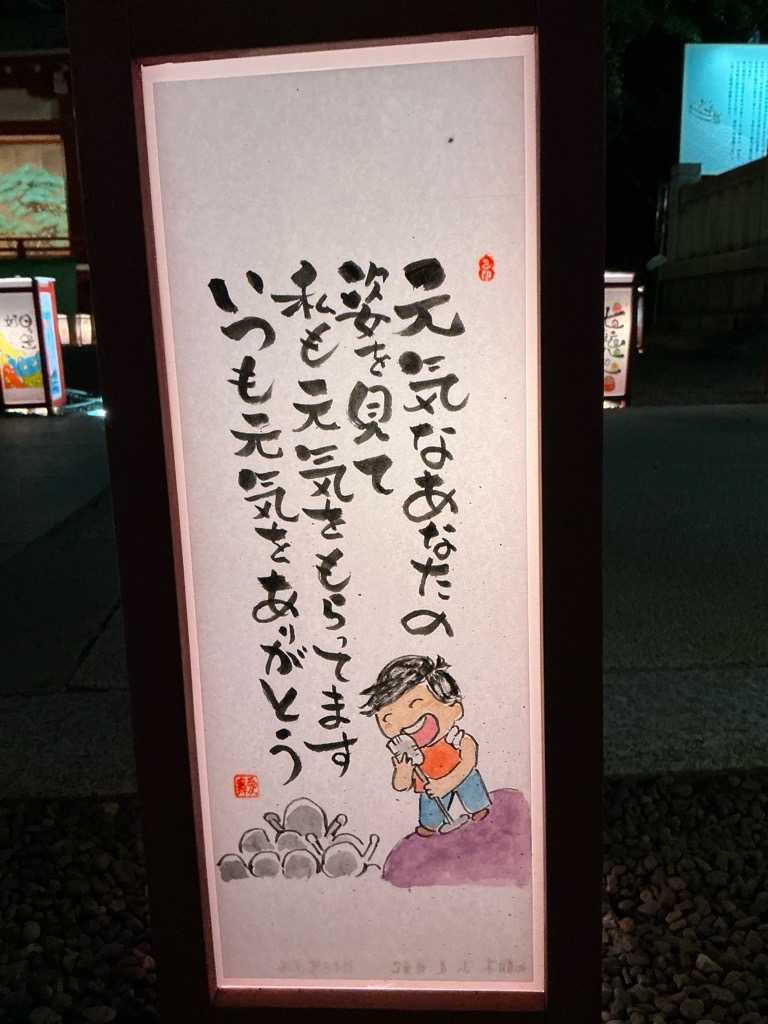 元気なあなたの
姿を見て
私も元気をもらってます
いつも元気をありがとう